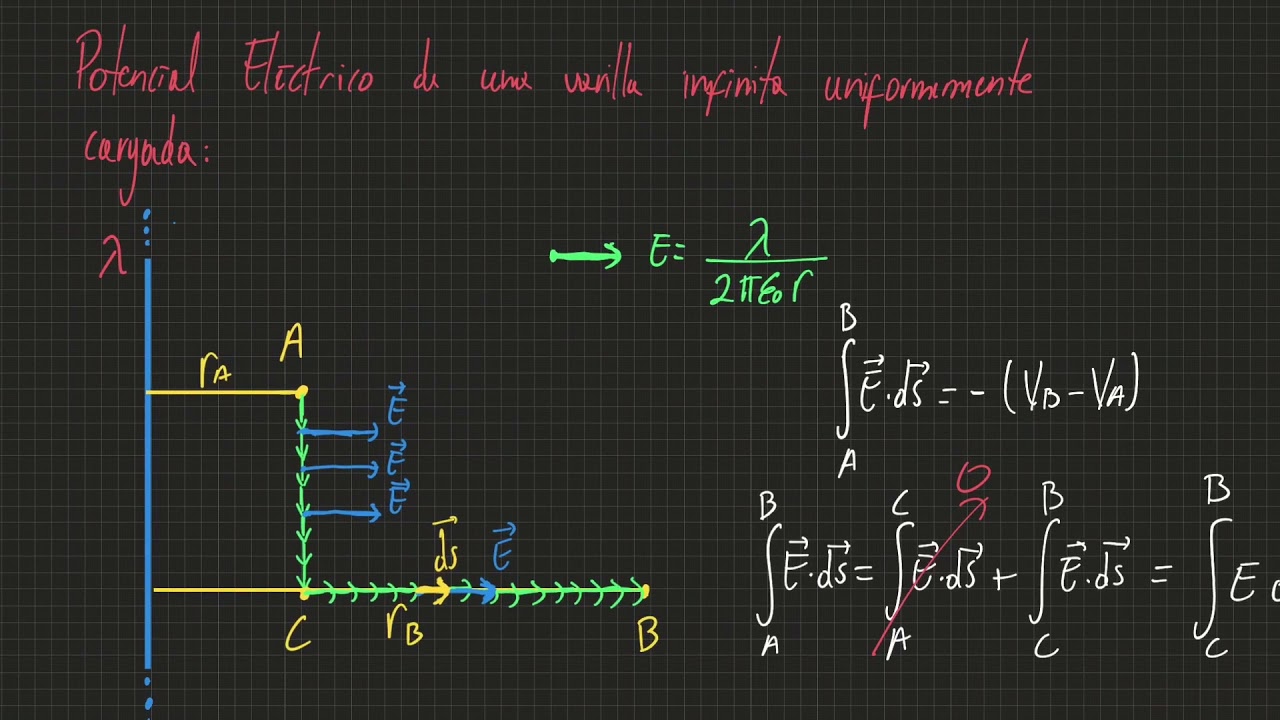 Potencial Eléctrico de una varilla infinita uniformemente
cargada:
λ
E = λ / 2πε₀r
A
r_A
E⃗
E⃗
E⃗
∫_A^B E⃗·ds⃗ = -(V_B - V_A)
ds⃗ E⃗
C r_B B
∫_A^B E⃗·ds⃗ = ∫_A^C E⃗·ds⃗ 0 + ∫_C^B E⃗·ds⃗ = ∫_C^B E